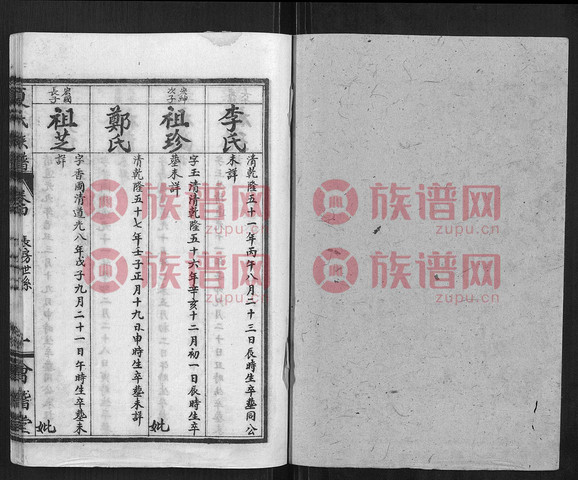 李氏
清乾隆五十一年丙午八月二十三日辰時生卒塟同公
未詳
次子
祖珍
字玉清清乾隆五十六年辛亥十二月初一日辰時生卒
塟未詳
妣
鄭氏
清乾隆五十七年壬子正月十九日申時生卒塟未詳
長子
祖芝
字香國清道光八年戊子九月二十一日午時生卒塟未
詳
妣
氏族譜
長房世系
會稽堂
族谱网
www.zupu.cn
族谱网
www.zupu.cn
族谱网
www.zupu.cn
族谱网
www.zupu.cn